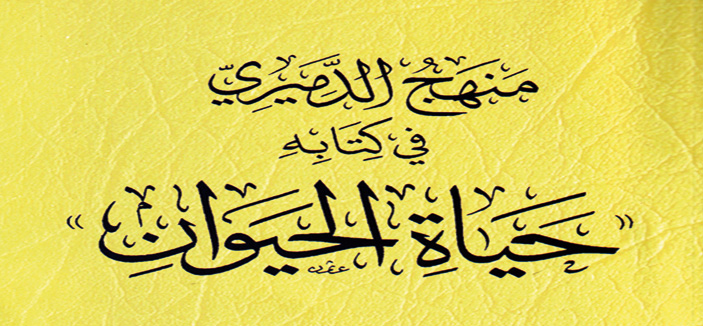 مَنهَجُ الدَّمِيَرِيّ
في كِتَابِهِ
«حَيَاةِ الحَيَوانِ»